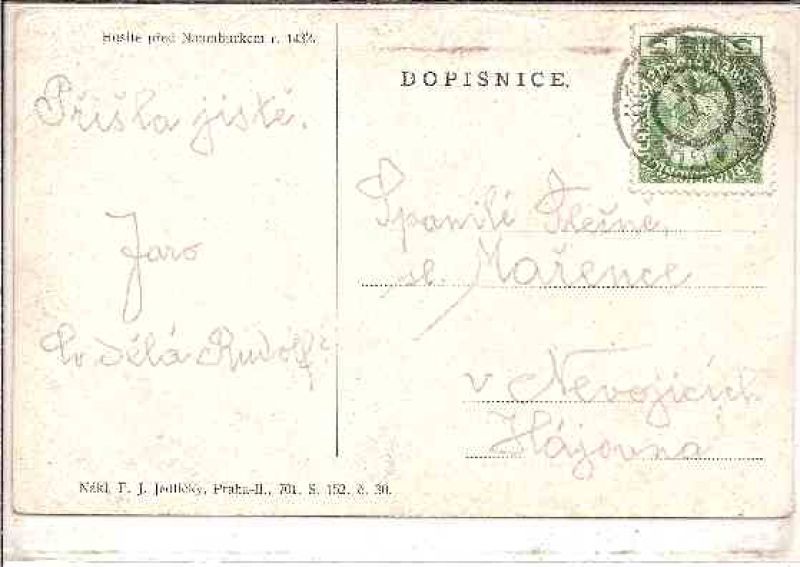 Husité před Naumburkem r. 1432.
DOPISNICE.
Přišla jistě.
Jaro
Co dělá Rudolf?
Spanilé
sl. Mařence
v Nevojicích
Hájovna
Nákl. F. J. Jedličky, Praha-II., 701. S. 152. č. 30.